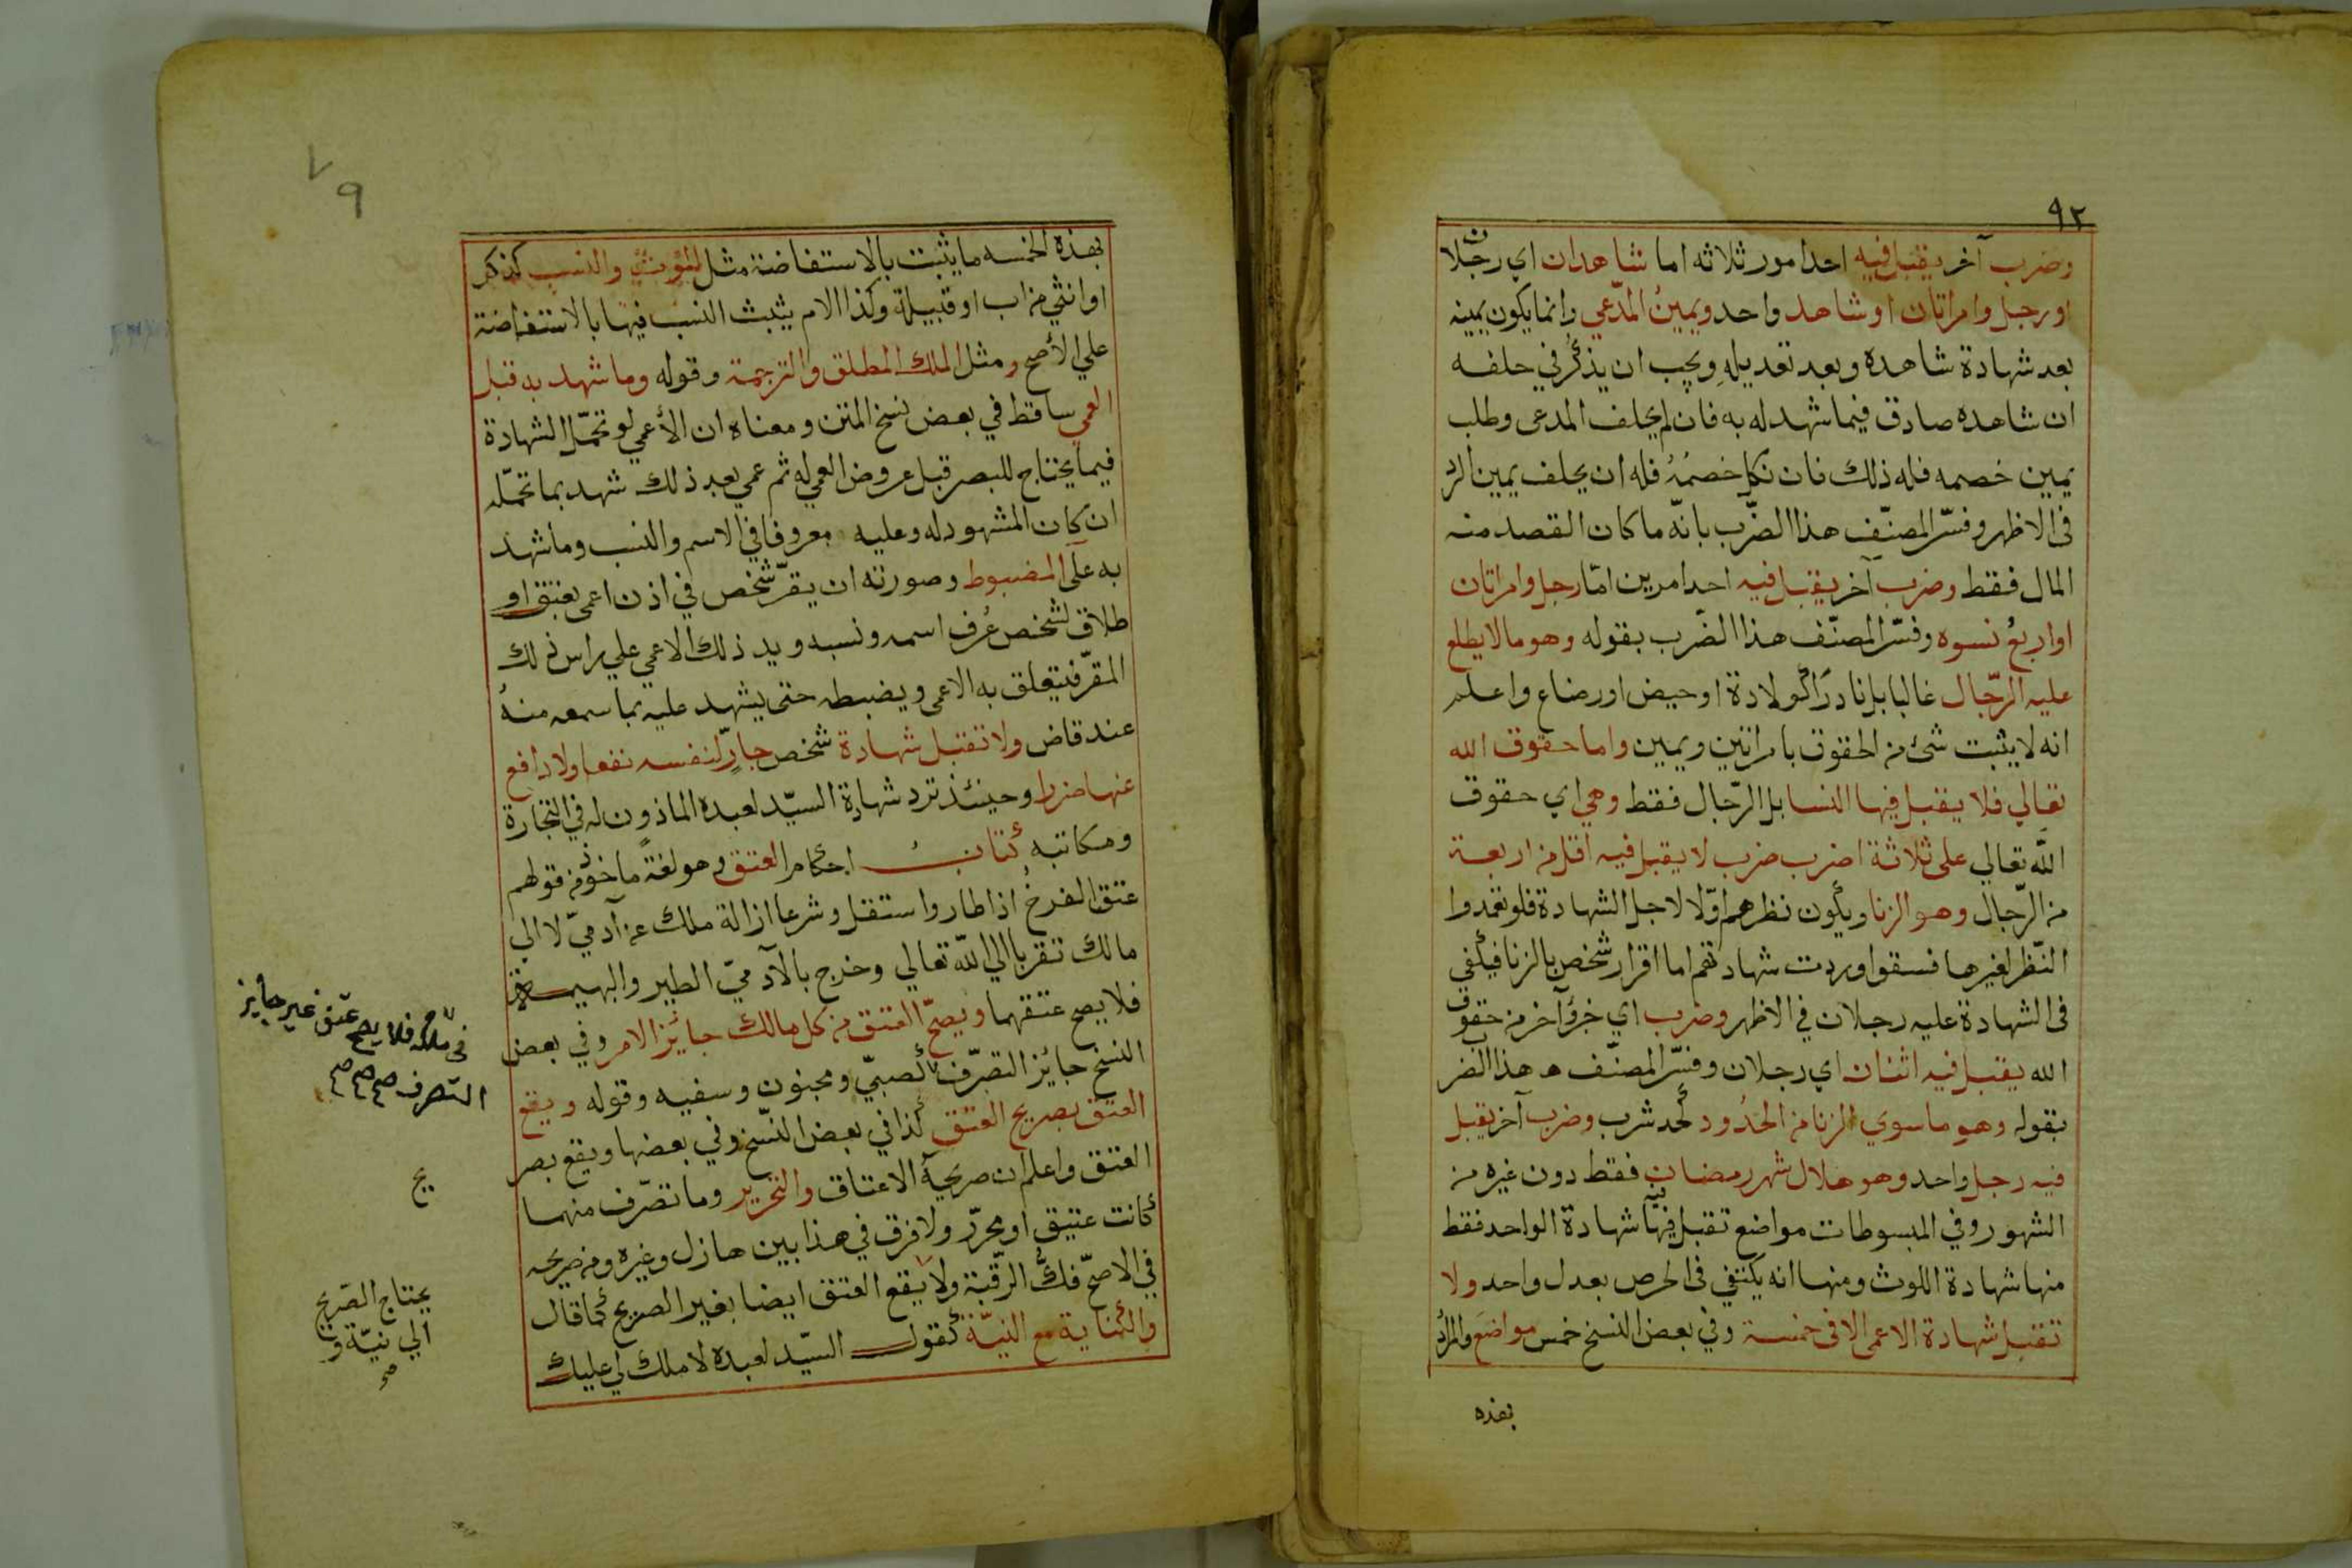 ٩٢
وضرب آخر يقبل فيه احد امور ثلاثه اما شاهدان اي رجلان
او رجل وامراتان او شاهد واحد ويمين المدّعي وانما يكون يمينه
بعد شهادة شاهده وبعد تعديله ويجب ان يذكر في حلفه
ان شاهده صادق فيما شهد له به فان لم يحلف المدعى وطلب
يمين خصمه فله ذلك فان نكل خصمُهُ فله ان يحلف يمين الرد
فى الاظهر وفسّر المصنّف هذا الضّرب بانّه ما كان القصد منه
المال فقط وضرب آخر يقبل فيه احد امرين امّا رجل وامراتان
او اربعُ نسوه وفسّر المصنّف هذا الضّرب بقوله وهو ما لا يطلع
عليه الرّجال غالبا بل نادرًا كولادة او حيض او رضاع واعلم
انه لا يثبت شئ من الحقوق بامراتين ويمين واما حقوق الله
تعالي فلا يقبل فيها النسا بل الرّجال فقط وهي اي حقوق
اللّه تعالي على ثلاثة اضرب ضرب لا يقبل فيه اقل من اربعة
من الرّجال وهو الزنا ويكون نظرهم اوّلا لاجل الشهادة فلو تعمدوا
النّظر لغيرها فسقوا وردت شهادتهم اما اقرار شخص بالزنا فيكفي
فى الشهادة عليه رجلان في الاظهر وضرب اي خر آخر من حقوق
الله يقبل فيه اثنان اي رجلان وفسّر المصنّف ه هذا الضرب
بقوله وهو ما سوي الزنا من الحدُود كحد شرب وضرب آخر يقبل
فيه رجل واحد وهو هلال شهر رمضان فقط دون غيره من
الشهور وفي المبسوطات مواضع تقبل فيها شهادة الواحد فقط
منها شهادة اللوث ومنها انه يكتفي فى الخرص بعدل واحد ولا
تقبل شهادة الاعمى الا فى خمسة وفي بعض النسخ خمس مواضع والمراد
بهذه
٧٩
بهذه الخمسه ما يثبت بالاستفاضة مثل الموت والنسب لذكر
او انثي من اب او قبيلة وكذا الام يثبت النسب فيها بالاستفاضة
علي الأصح ومثل الملك المطلق والترجمة وقوله وما شهد به قبل
العمي ساقط في بعض نسخ المتن ومعناه ان الأعمي لو تحمّل الشهادة
فيما يحتاج للبصر قبل عروض العمي له ثم عمي بعد ذلك شهد بما تحمّله
ان كان المشهود له وعليه معروفا في الاسم والنسب وما شهد
به علَى المضبوط وصورته ان يقرّ شخص في اذن اعمى بعتق او
طلاق لشخص عُرف اسمه ونسبه ويد ذلك الاعمي علي راس ذلك
المقرّ فيتعلق به الاعمى ويضبطه حتى يشهد عليه بما سمعه منهُ
عند قاض ولا تقبل شهادة شخص جارٍّ لنفسه نفعا ولا دافع
عنها ضررا وحينئذ ترد شهادة السيّد لعبده الماذون له في التجارة
ومكاتبه كتاب احكام العتق وهو لغة ماخوذ من قولهم
عتق الفرخُ اذا طار واستقل وشرعا ازالة ملك عن آدميّ لا الي
مالك تقربا الي اللّه تعالي وخرج بالآدميّ الطير والبهيمة
فلا يصح عتقهما ويصحّ العتق من كل مالك جايز الامر وفي بعض
النسخ جائز التصرّف كصبيّ ومجنون وسفيه وقوله ويقع
العتق بصريح العتق كذا في بعض النّسخ وفي بعضها ويقع بصر
العتق واعلم ان صريحه الاعتاق والتحرير وما تصرّف منهما
كانت عتيق او محرّر ولا فرق في هذا بين هازل وغيره ومن صريحه
في الاصحّ فكّ الرقبة ولا يقع العتق ايضا بغير الصريح كما قال
والكناية مع النيّة كقول السيّد لعبده لا ملك لي عليك
فى ملكه فلا يصح عتق غير جايز
التصرف صح صح صح
يح
يحتاج الصّريح
الي نيّة و
صح